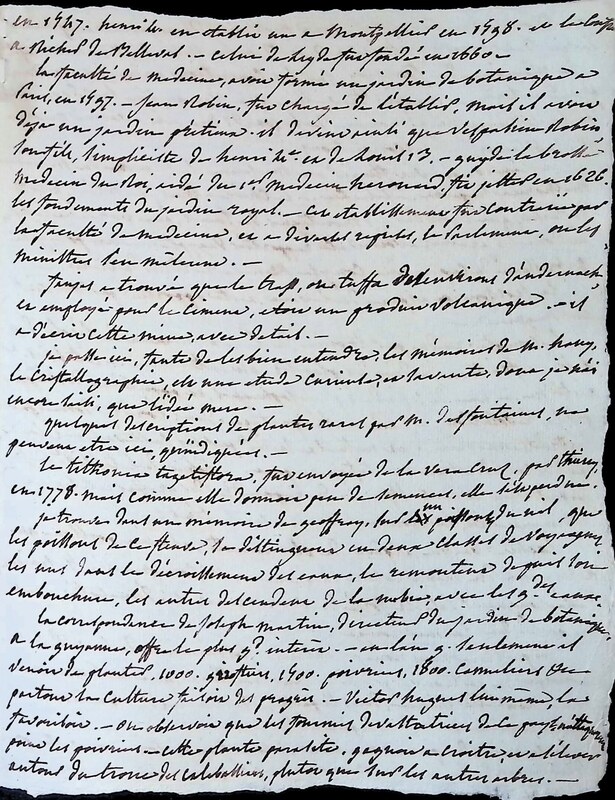 en 1547. henri 4. en établit un a Montpellier en 1598. et le confia
a Richer de Belleval. — celui de Leyde fut fondé en 1660 —
la faculté de medecine, avoit formé un jardin de botanique a
Paris, en 1597. — Jean Robin, fut chargé de l'etablir, mais il avoit
déja un jardin pretieux. il devint ainsi que Vespasien Robin
son fils, simpliciste de henri 4. et de Louis 13. — guy de la brosse
medecin du Roi, aidé du 1er medecin herouard, fit jetter en 1626
les fondements du jardin royal. — cet etablissement fut contrarié par
la faculté de medecine, et a diverses reprises, le Parlement, ou les
ministres s'en mélerent. —
faujas a trouvé que le trass, ou tuffa des environs d'andernach
et employé pour le ciment, etoit un produit volcanique. — il
a décrit cette mine, avec detail. —
je passe ici, faute de les bien entendre, les mémoires de M. hauy,
la cristallographie, est une etude curieuse, et savante, dont je n'ai
encore saisi, que l'idée mere. —
quelques descriptions de plantes rares par M. desfontaines, ne
peuvent etre ici, qu'indiquées. —
le tithonia tagetiflora, fut envoyée de la vera Cruz, par thiery
en 1778. mais comme elle donnoit peu de semences, elle s'est perdue.
je trouve dans un memoire de geoffroy, sur un poisson du nil, que
les poissons de ce fleuve, se distinguent en deux classes de voyageurs
les uns dans le décroissement des eaux, le remontent depuis son
embouchure, les autres descendent de la nubie, avec les gdes eaux.
la correspondance de Joseph martin, directeur du jardin de botanique
a la guyanne, offre le plus gd interêt. — en l'an 9 seulement il
venoit de planter, 1000. girofliers, 1500. poivriers, 1800. cannelliers &c
partout la culture faisoit des progrès. — Victor hugues lui même, la
favorisoit. — on observoit que les fourmis devastatrices de ce pays n'attaquoient
point les poivriers — cette plante parasite, gagnoit a croitre, et a s'elever
autour du tronc des calebassiers, plutot que sur les autres arbres. —